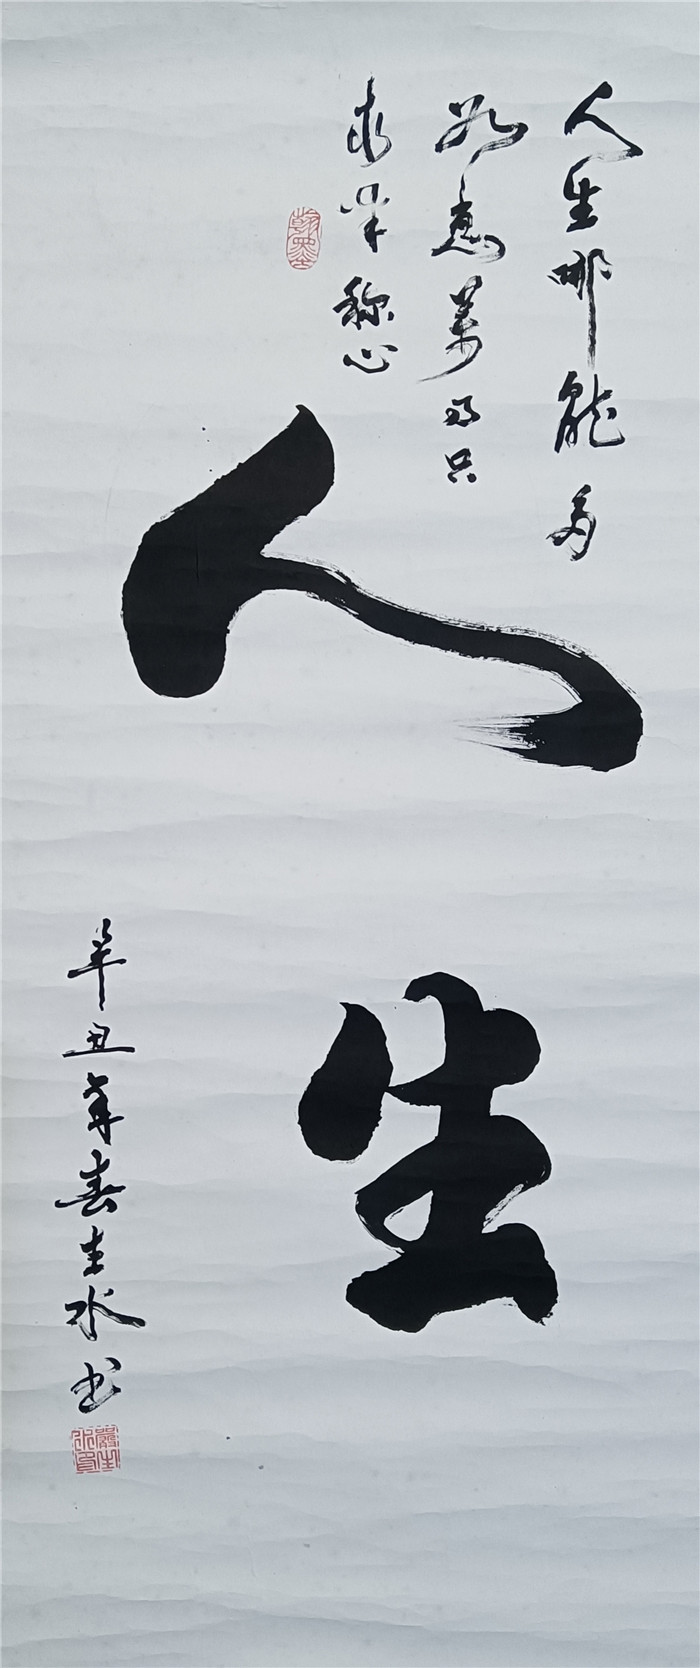 人生哪能多
如意萬事只
求半称心
人生
辛丑年春生水书
嚴生水印